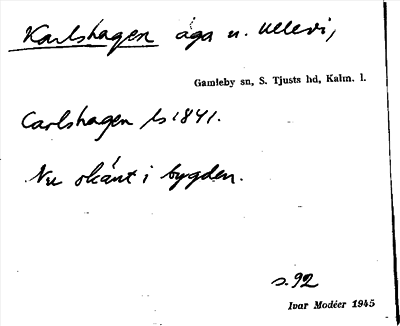 Karlshagen äga u. Ullevi,
Gamleby sn, S. Tjusts hd, Kalm. l.
Carlshagen Ls 1841.
Nu okänt i bygden.
s. 92
Ivar Modéer 1945